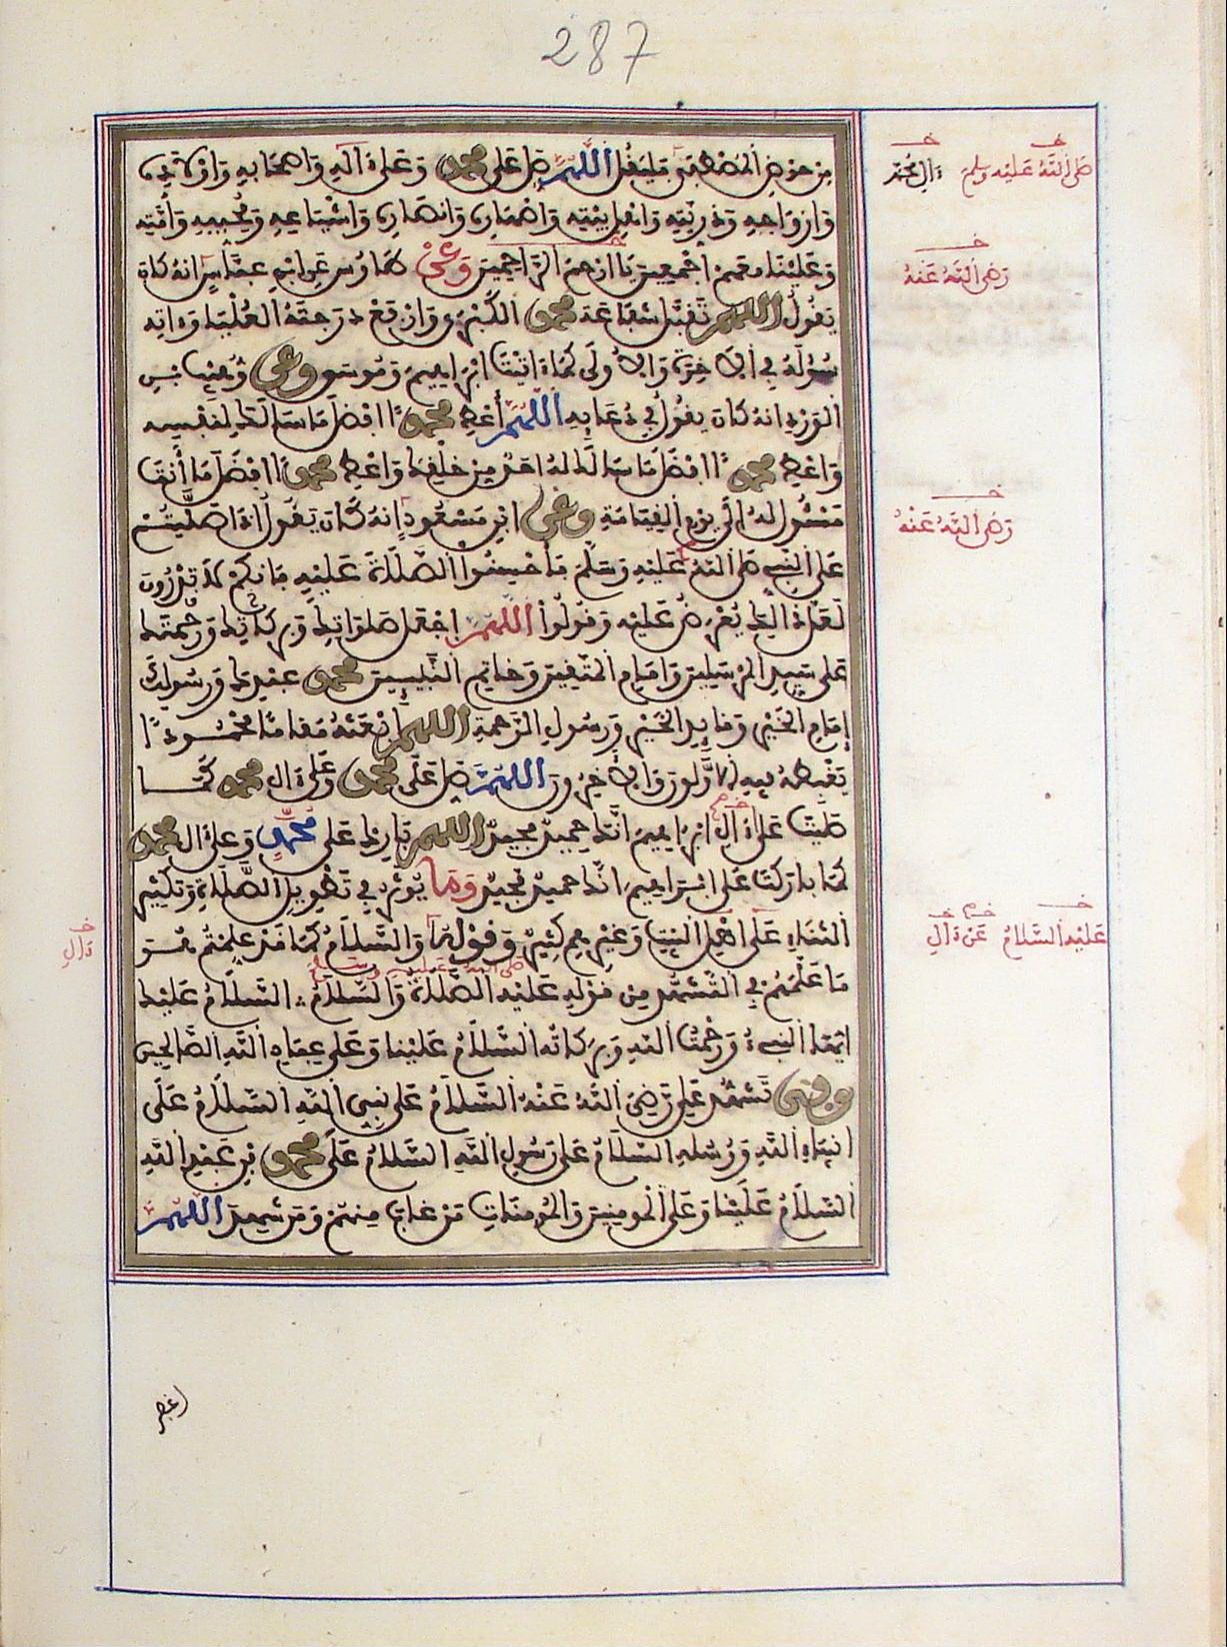 287
من حوض المصطفى فليقل اللهم صل على محمد وعلى ءاله واصحابه واولاده
وازواجه وذريته واهل بيته واصهاره وانصاره واشياعه ومحبيه وأمته
وعلينا معهم اجمعين يا ارحم الراحمين وعن طاوس عن ابن عباس انه كان
يقول اللهم تقبل شفاعة محمد الكبرى وارفع درجته العليا وءاته
سؤله في الاخرة والاولى كما ءاتيت ابراهيم وموسى وعن وهيب بن
الورد انه كان يقول في دعايه اللهم أعط محمدا افضل ما سألك لنفسه
واعط محمدا افضل ما سالك له احد من خلقك واعط محمدا افضل ما أنت
مسئول له الى يوم القيامة وعن ابن مسعود انه كان يقول اذا صليتم
على النبي صلى الله عليه وسلم فأحسنوا الصلاة عليه فانكم لا تدرون
لعل ذلك يعرض عليه وقولوا اللهم اجعل صلواتك وبركاتك ورحمتك
على سيد المرسلين وامام المتقين وخاتم النبيين محمد عبدك ورسولك
إمام الخير وقايد الخير ورسول الرحمة اللهم ابعثه مقاما محمودا
يغبطه فيه الاولون والاخرون اللهم صل على محمد وعلى ءال محمد كما
صليت على ءال ابراهيم انك حميد مجيد اللهم بارك على محمد وعلى ءال محمد
كما باركت على ابراهيم انك حميد مجيد وما يوثر في تطويل الصلاة وتكثير
الثناء على اهل البيت وغيرهم كثير وقوله والسلام كما قد علمتم هو
ما علمهم في التشهد من قوله عليه الصلاة والسلام السلام عليك
صلى الله عليه وسلم
ايها النبيء ورحمت الله وبركاته السلام علينا وعلى عباد الله الصالحين
وفي تشهد علي رضي الله عنه السلام على نبي الله السلام على
انبياء الله ورسله السلام على رسول الله السلام على محمد بن عبد الله
السلام علينا وعلى المومنين والمومنات من غاب منهم ومن شهد اللهم
صلى الله عليه وسلم
رضي الله عنه
رضي الله عنه
عليه السلام
ءال
اغفر